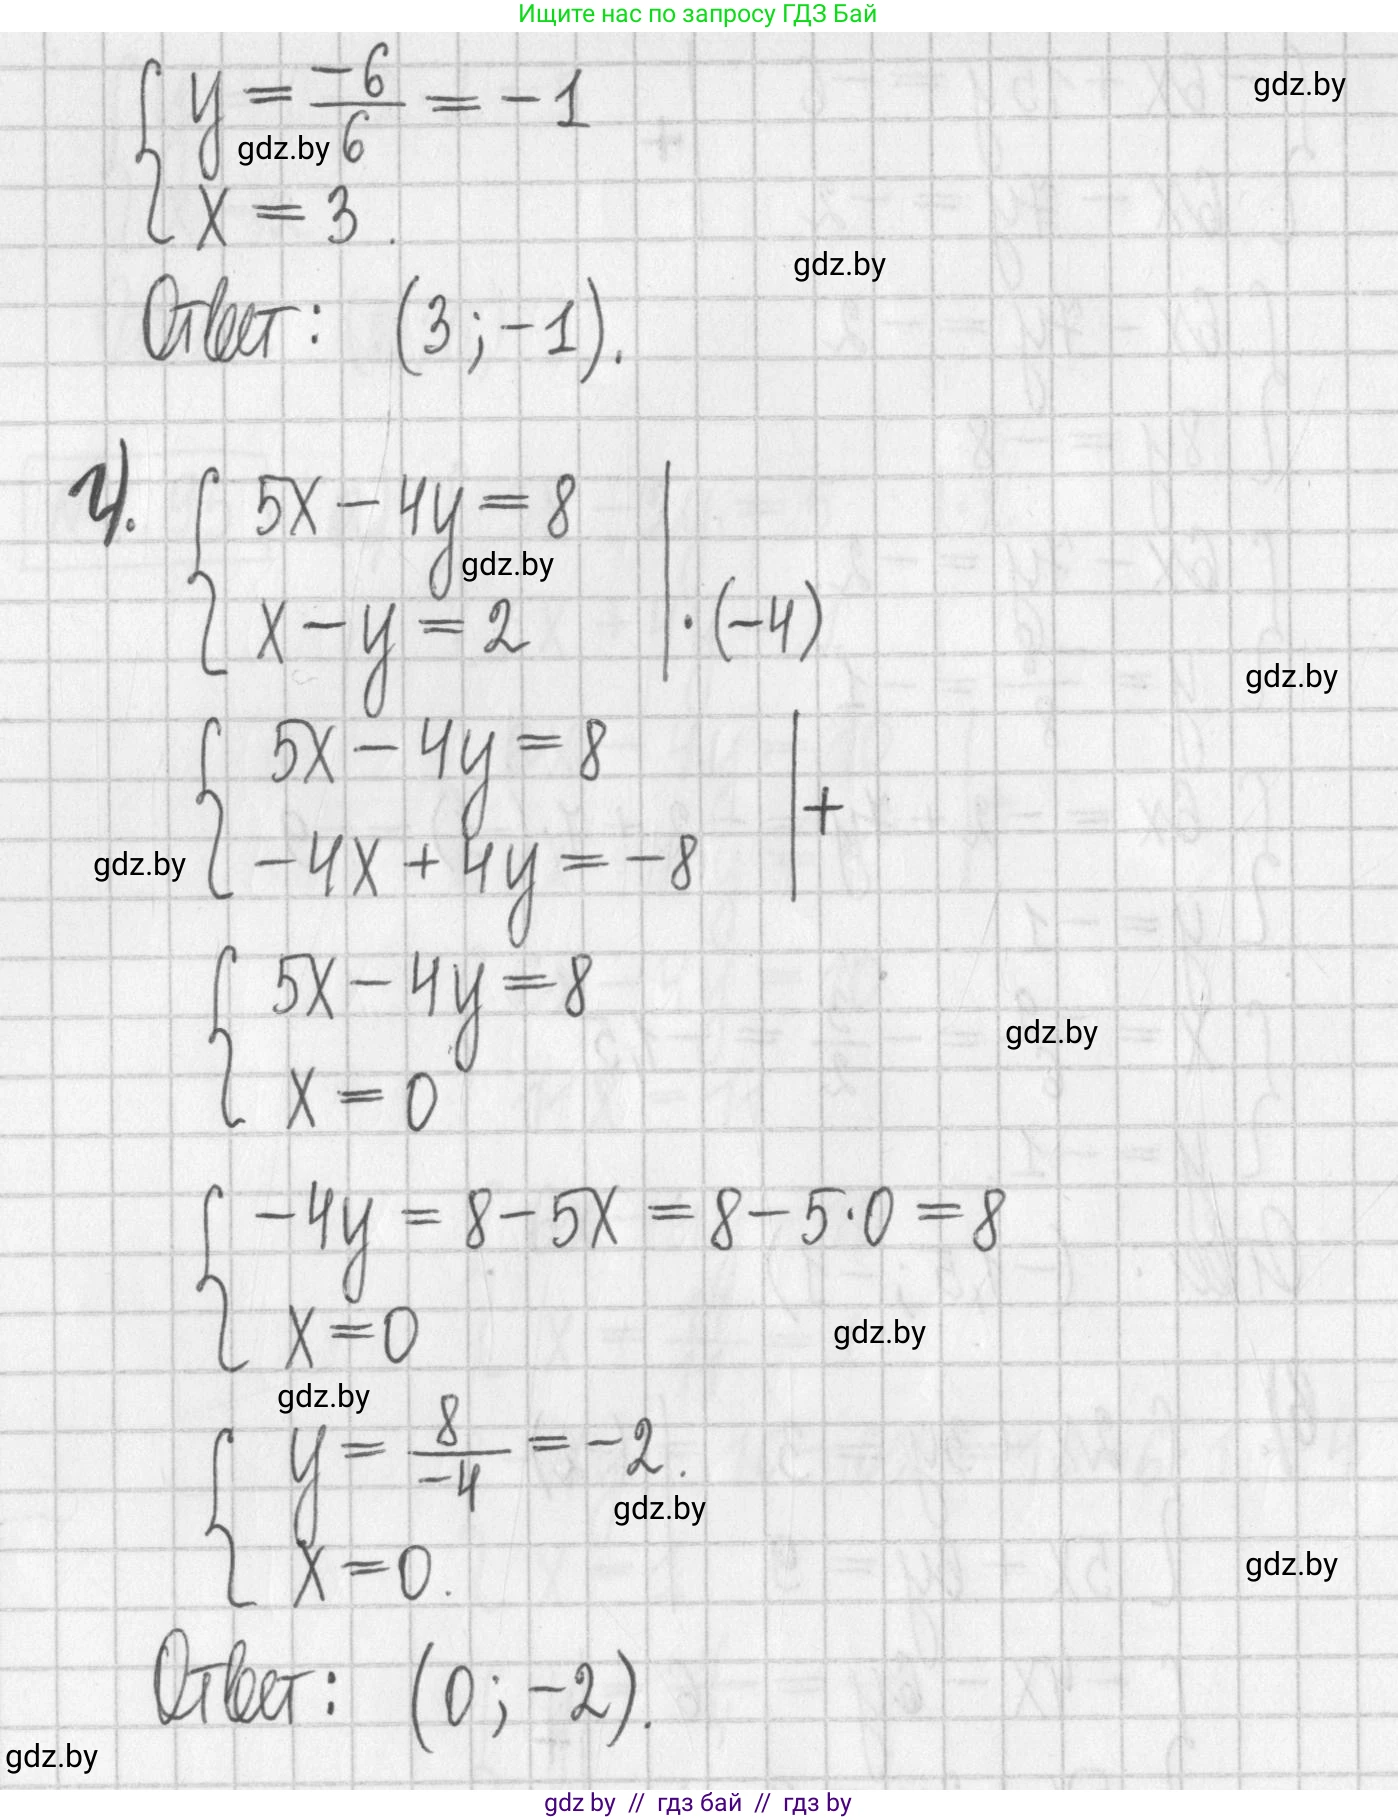 Ищите нас по запросу ГДЗ Бай
y = -6/6 = -1
gdz.by
gdz.by
x = 3.
gdz.by
Ответ: (3; -1).
г). 5x - 4y = 8
gdz.by
x - y = 2 | · (-4)
gdz.by
5x - 4y = 8
+
gdz.by
-4x + 4y = -8
5x - 4y = 8
gdz.by
x = 0
-4y = 8 - 5x = 8 - 5·0 = 8
x = 0
gdz.by
gdz.by
y = 8/-4 = -2.
gdz.by
x = 0.
gdz.by
Ответ: (0; -2).
gdz.by
gdz by // гдз бай // гдз by